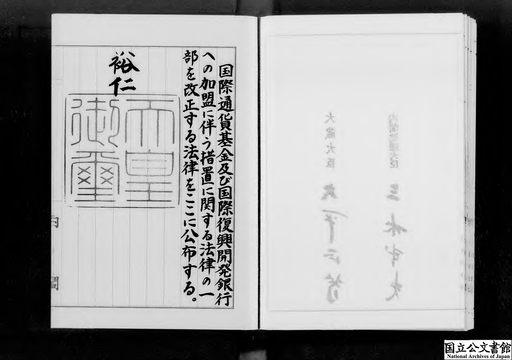 国際通貨基金及び国際復興開発銀行
への加盟に伴う措置に関する法律の一
部を改正する法律をここに公布する。
裕仁
天皇
御璽
内閣
大蔵大臣
国立公文書館
National Archives of Japan